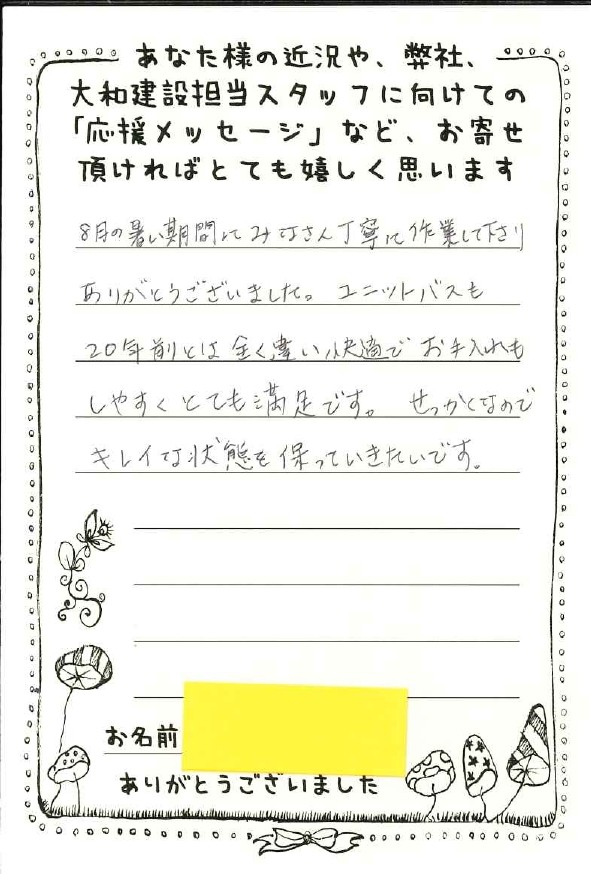 あなた様の近況や、弊社、
大和建設担当スタッフに向けての
「応援メッセージ」など、お寄せ
頂ければとても嬉しく思います
8月の暑い期間にみなさん丁寧に作業して下さり
ありがとうございました。 ユニットバスも
20年前とは全く違い快適でお手入れも
しやすくとても満足です。 せっかくなので
キレイな状態を保っていきたいです。
お名前
ありがとうございました